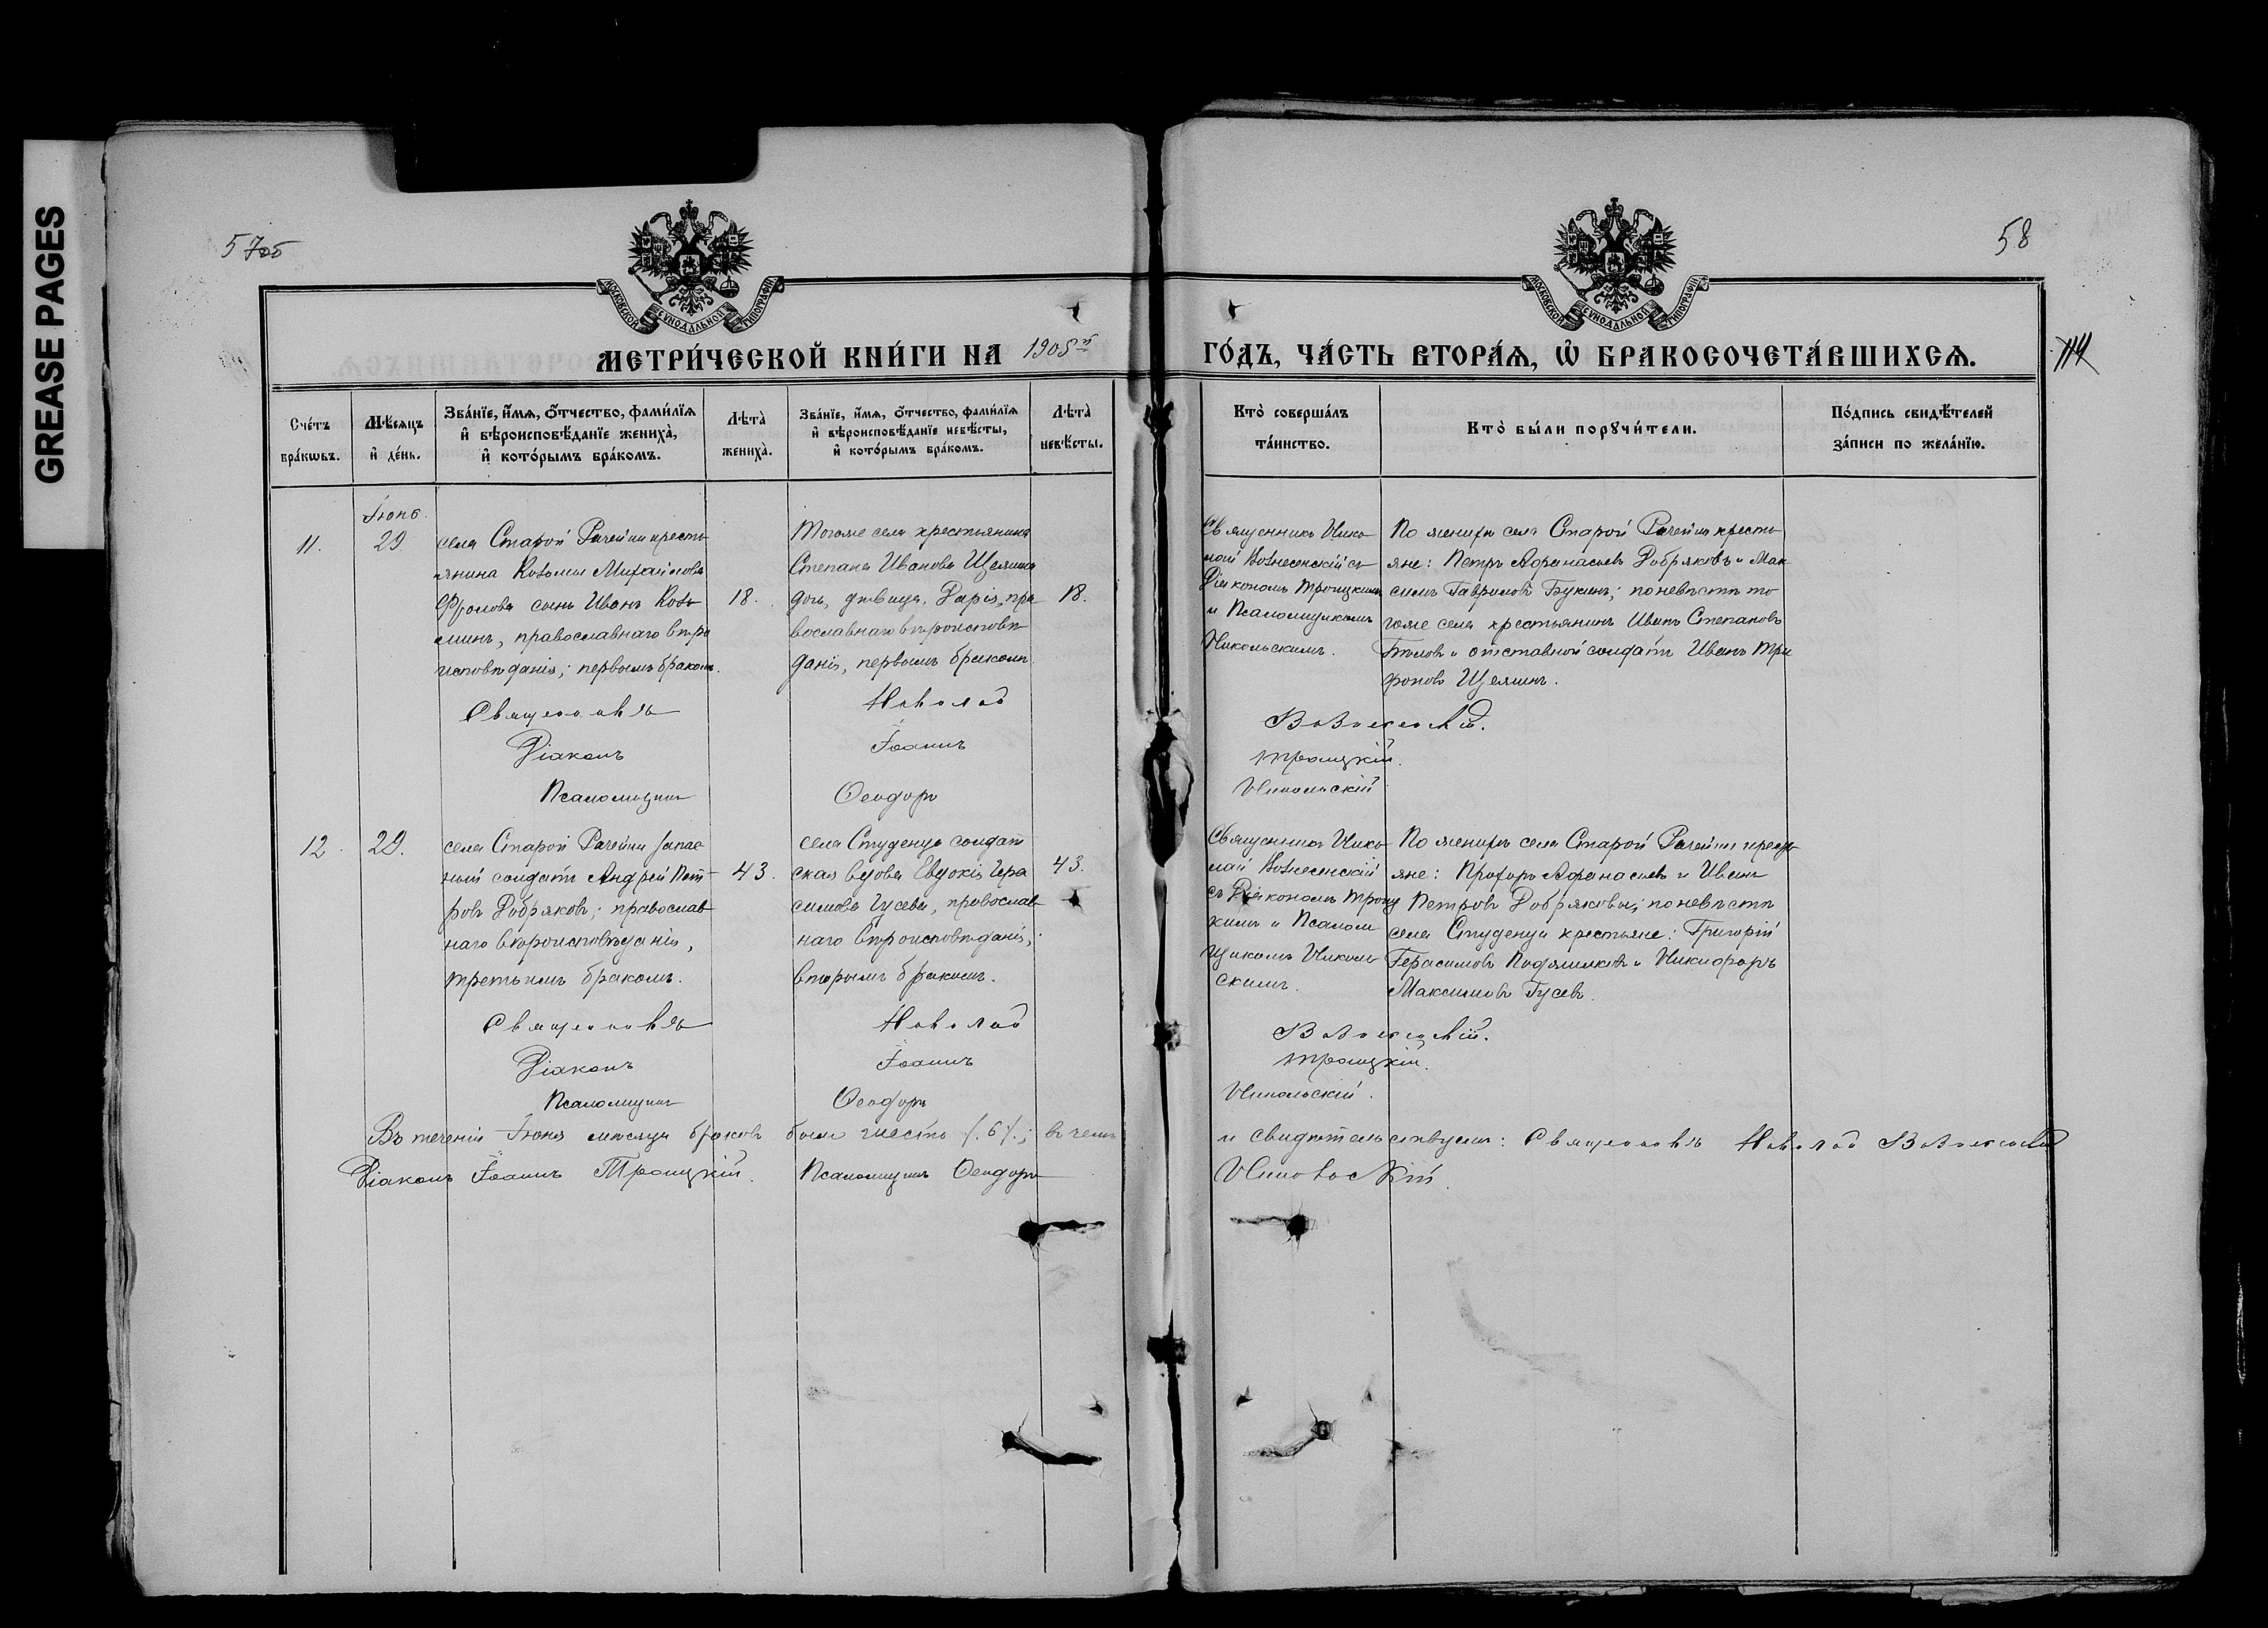 GREASE PAGES
58
МОСКОВСКОЙ СѴНОДАЛЬНОЙ ТИПОГРАФІИ
МОСКОВСКОЙ СѴНОДАЛЬНОЙ ТИПОГРАФІИ
МЕТРИ́ЧЕСКОЙ КНИ́ГИ НА 1905й
ГО́ДЪ, ЧА́СТЬ ВТОРА́Ѧ, Ѽ БРАКОСОЧЕТА́ВШИХСѦ.
114
Сче́тъ
бра́кѡвъ.
Мѣ́сяцъ
и҆ де́нь.
Зва́нїе, и҆́мѧ, ѻ҆́тчество, фами́лїѧ
и҆ вѣроисповѣ́данїе жениха̀,
и҆ кото́рымъ бра́комъ.
Лѣта̀
жениха̀.
Зва́нїе, и҆́мѧ, ѻ҆́тчество, фами́лїѧ
и҆ вѣроисповѣ́данїе невѣ́сты,
и҆ кото́рымъ бра́комъ.
Лѣта̀
невѣ́сты.
Кто̀ соверша́лъ
та́инство.
Кто̀ бы́ли порꙋчи́тели.
По́дпись свидѣ́телей
за́писи по жела́нїю.
11.
Іюнь.
29
села Старой Рачейки кресть
янина Козьмы Михайлова
Фролова сынъ Иванъ Козь
минъ, православнаго вѣро
исповѣданія; первымъ бракомъ.
18.
Тогоже села крестьянина
Степана Иванова Щелина
дочь, дѣвица, Дарія, пра
вославнаго вѣроисповѣ
данія, первымъ бракомъ
18.
Священникъ Нико
лай Вознесенскій съ
Діакономъ Троицкимъ
и Псаломщикомъ
Никольскимъ.
По женихѣ села Старой Рачейки кресть
яне: Петръ Афанасьевъ Добряковъ и Мак
симъ Гавриловъ Букинъ; по невѣстѣ то
гоже села крестьянинъ Иванъ Степановъ
Бѣловъ и отставной солдатъ Иванъ Три
фоновъ Щелинъ.
Священникъ Николай Вознесенскій.
Діаконъ Іоаннъ Троицкій.
Псаломщикъ Ѳеодоръ Никольскій
12.
29.
села Старой Рачейки запас
ный солдатъ Андрей Пет
ровъ Добряковъ; православ
наго вѣроисповѣданія,
третьимъ бракомъ.
43.
села Студенца солдат
ская вдова Евдокія Гера
симова Гусева, православ
наго вѣроисповѣданія,
вторымъ бракомъ.
43.
Священникъ Нико
лай Вознесенскій
съ Діакономъ Троиц
кимъ и Псалом
щикомъ Николь
скимъ.
По женихѣ села Старой Рачейки кресть
яне: Прохоръ Афанасьевъ и Иванъ
Петровъ Добряковы; по невѣстѣ
села Студенца крестьяне: Григорій
Герасимовъ и Никифоръ
Максимовъ Гусевъ.
Священникъ Николай Вознесенскій.
Діаконъ Іоаннъ Троицкій.
Псаломщикъ Ѳеодоръ Никольскій.
Въ теченіи Іюня мѣсяца браковъ было шесть /.6/.; въ чемъ и свидѣтельствуемъ: Священникъ Николай Вознесенскій
Діаконъ Іоаннъ Троицкій. Псаломщикъ Ѳеодоръ Никольскій.